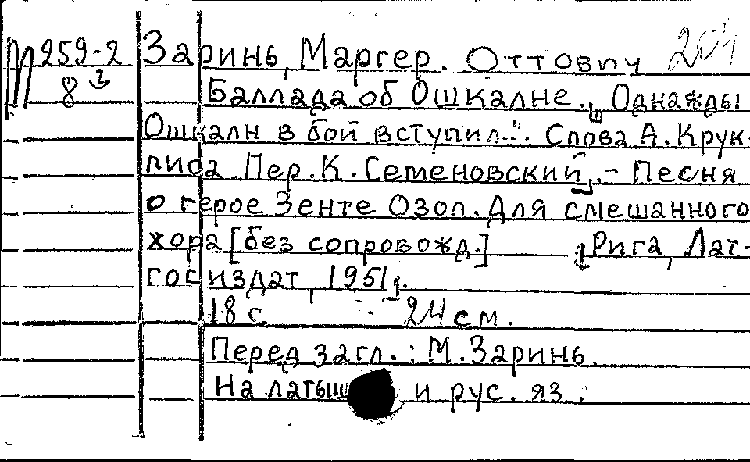 М 259-2 Заринь, Маргер. Оттович 204
8 Баллада об Ошкалне. „Однажды
Ошкалн в бой вступил..." Слова А. Крук-
лиса Пер. К. Семеновский. - Песня
о герое Зенте Озол. Для смешанного
хора [без сопровожд.] Рига, Лат-
госиздат, 1951г.
18 с. 24 см.
Перед загл.: М. Заринь.
На латыш и рус. яз.